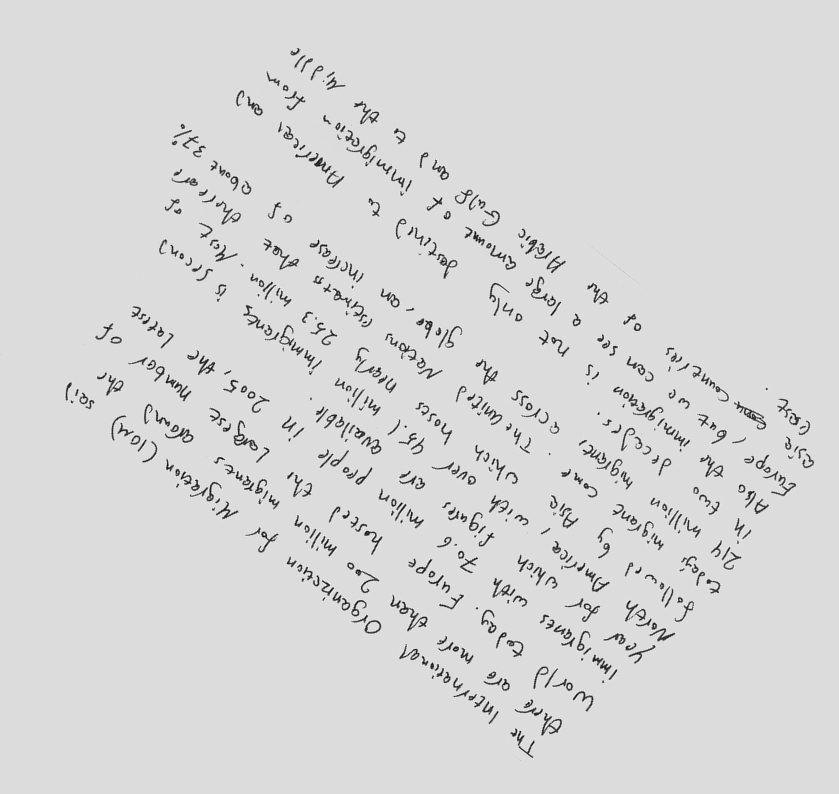 The International Organization for Migration (IOM) said
there are more than 200 million migrants around the
World today. Europe hosted the Largest number of
immigrants with 70.6 million people in 2005, the Latest
Year for which figures are available.
North America, with over 45.1 million immigrants is second
followed by Asia, which hosts nearly 25.3 million. Most of
today's migrant come. The United Nations estimates that there are
214 million migrants across the globe, an increase of about 37%
in two decades.
Also the immigration is not only destined to Americas and
Europe, but we can see a large amount of immigration from
asia countries of the Arabic Gulf and to the Middle
East.